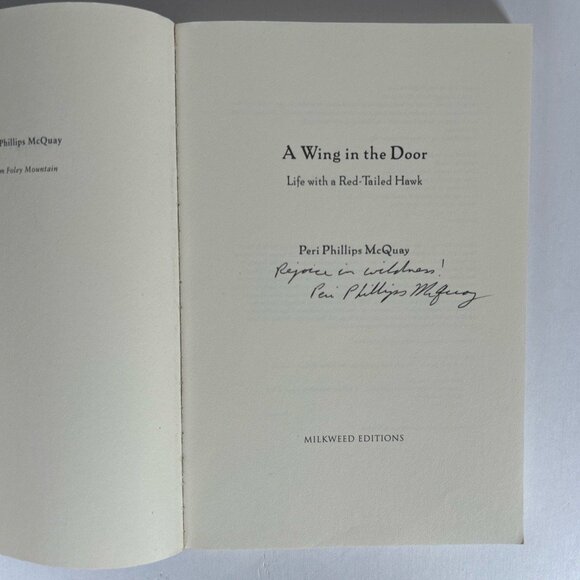 Phillips McQuay
Foley Mountain
A Wing in the Door
Life with a Red-Tailed Hawk
Peri Phillips McQuay
Rejoice in wildness!
Peri Phillips McQuay
MILKWEED EDITIONS